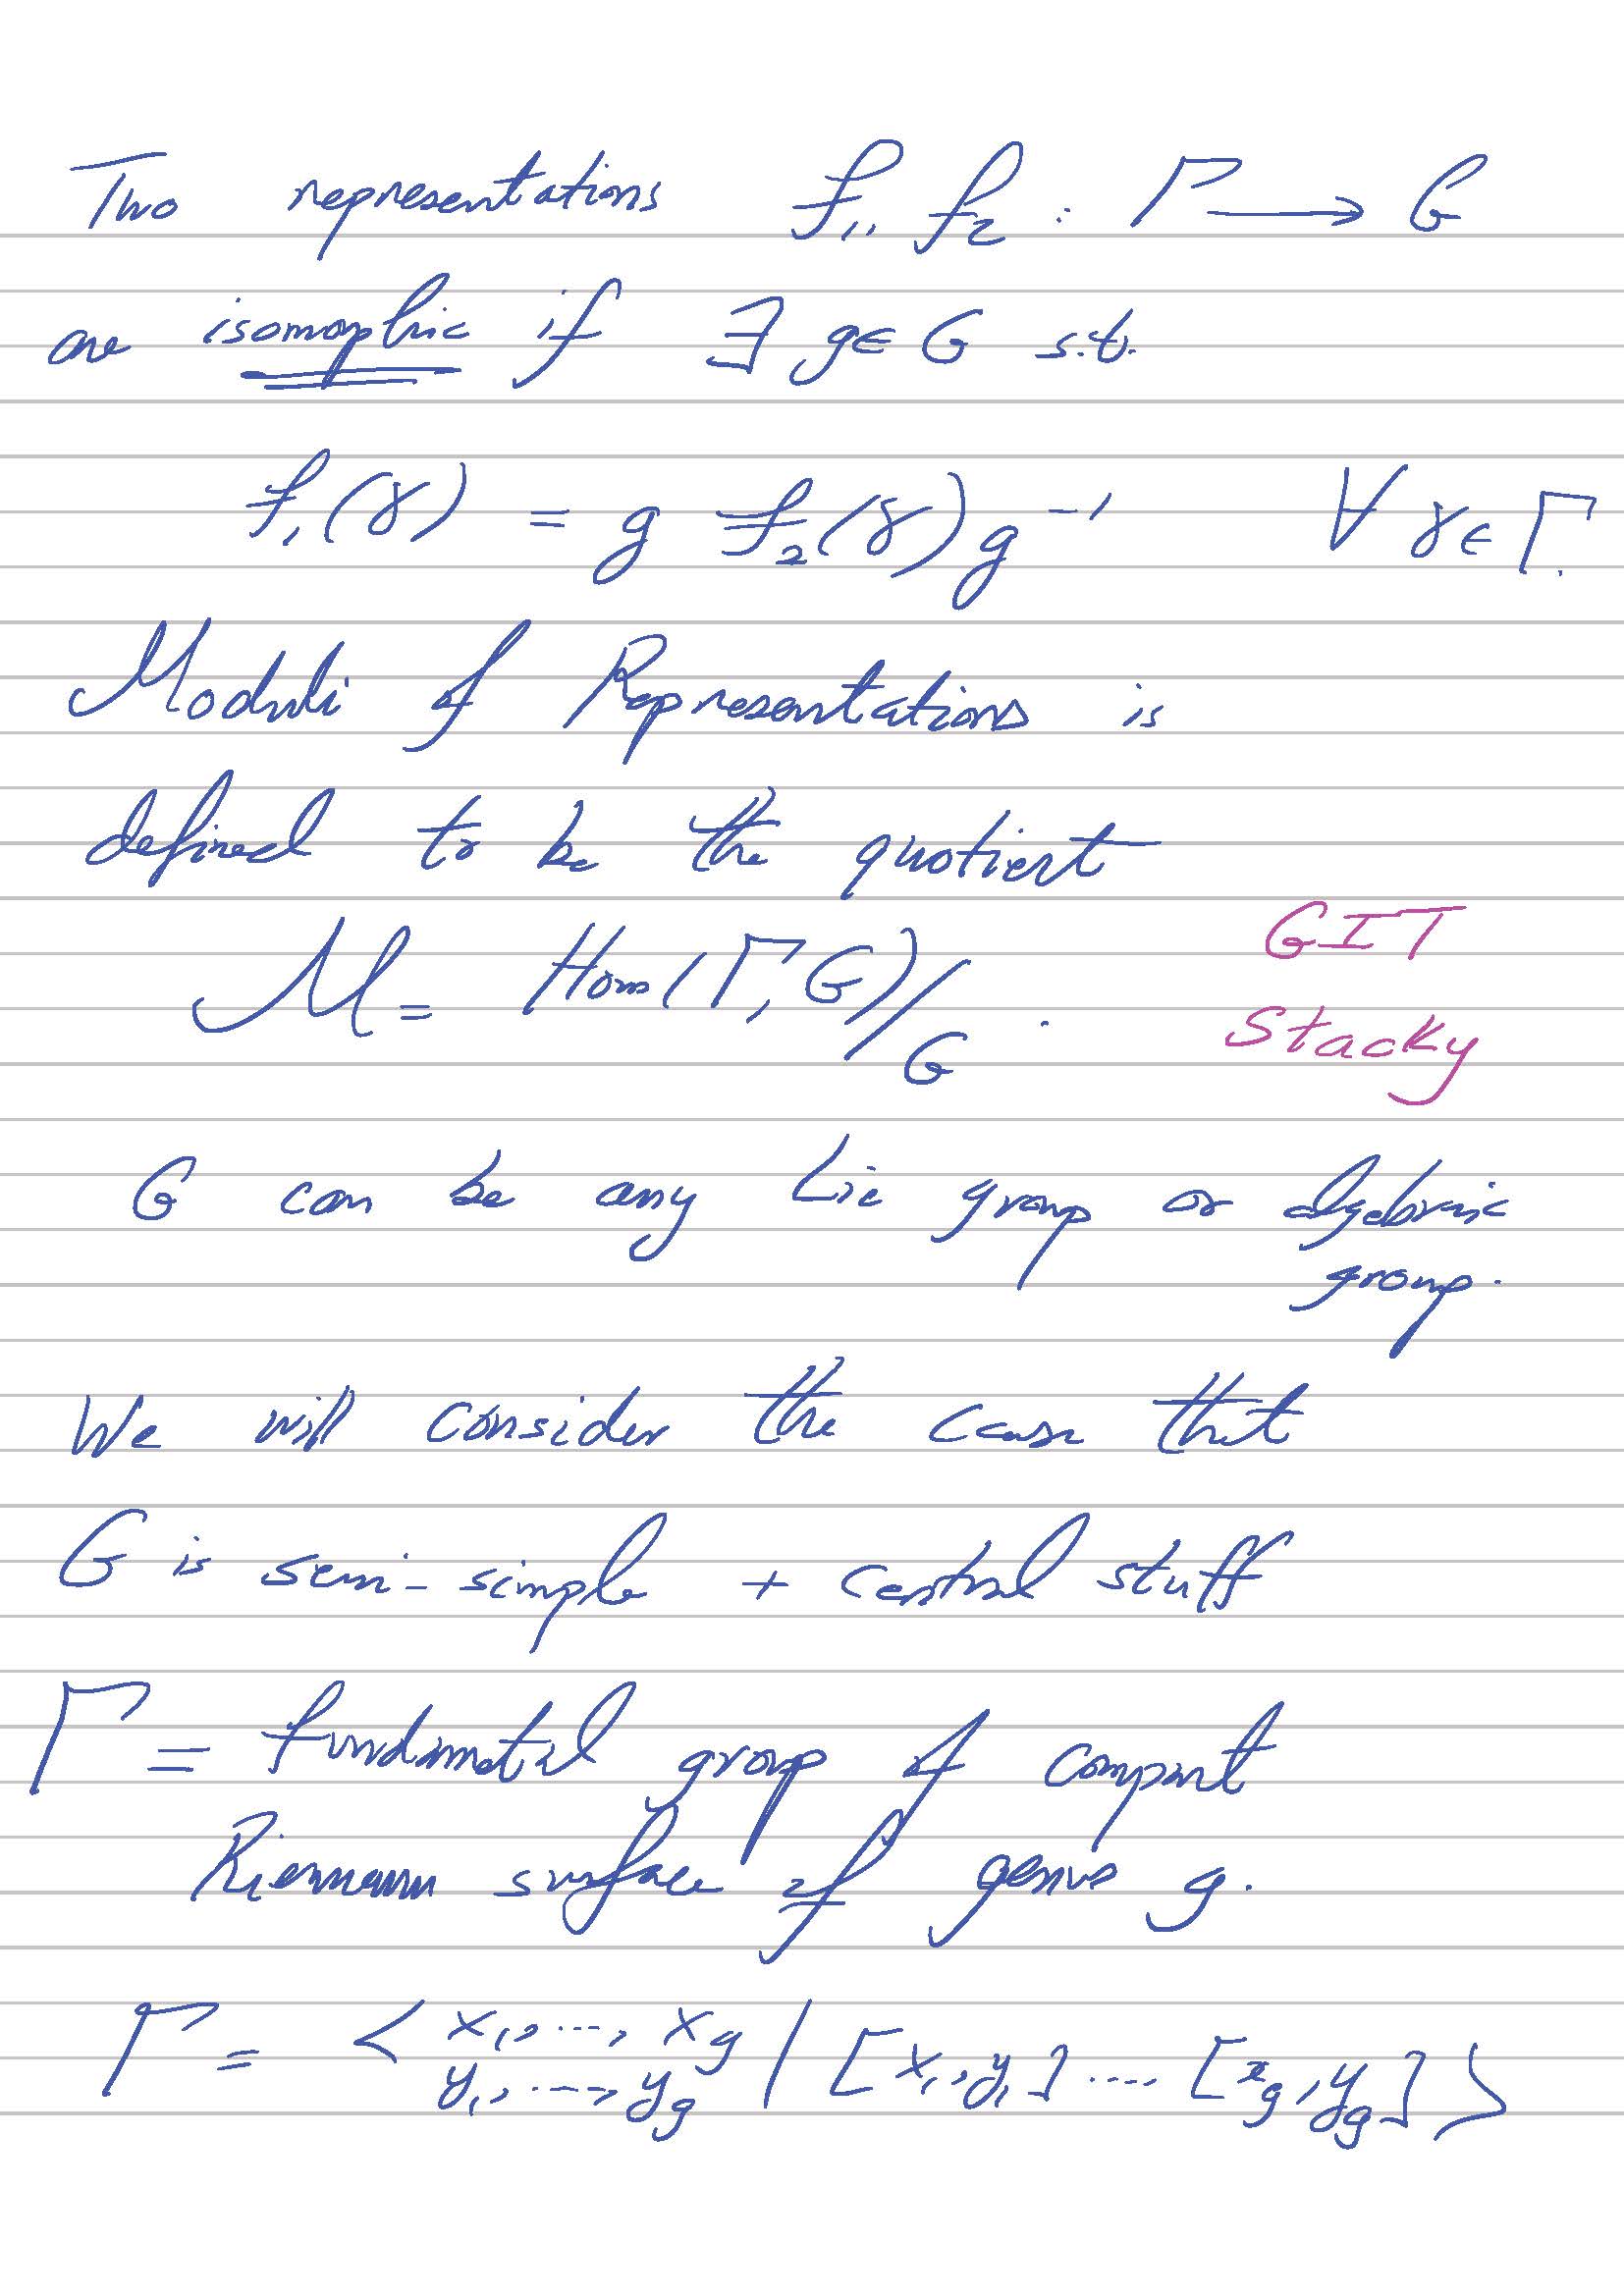 Two representations f₁, f₂ : Γ ⟶ G
are isomorphic if ∃ g ∈ G s.t.
f₁(γ) = g f₂(γ) g⁻¹ ∀ γ ∈ Γ.
Moduli of Representations is
defined to be the quotient
GIT
M = Hom(Γ, G)/G.
Stacky
G can be any Lie group or algebraic
group.
We will consider the case that
G is semi-simple + central stuff
Γ = fundamental group of compact
Riemann surface of genus g.
Γ = < x₁, ..., x_g | [x₁, y₁] .... [x_g, y_g] >
y₁, ...., y_g